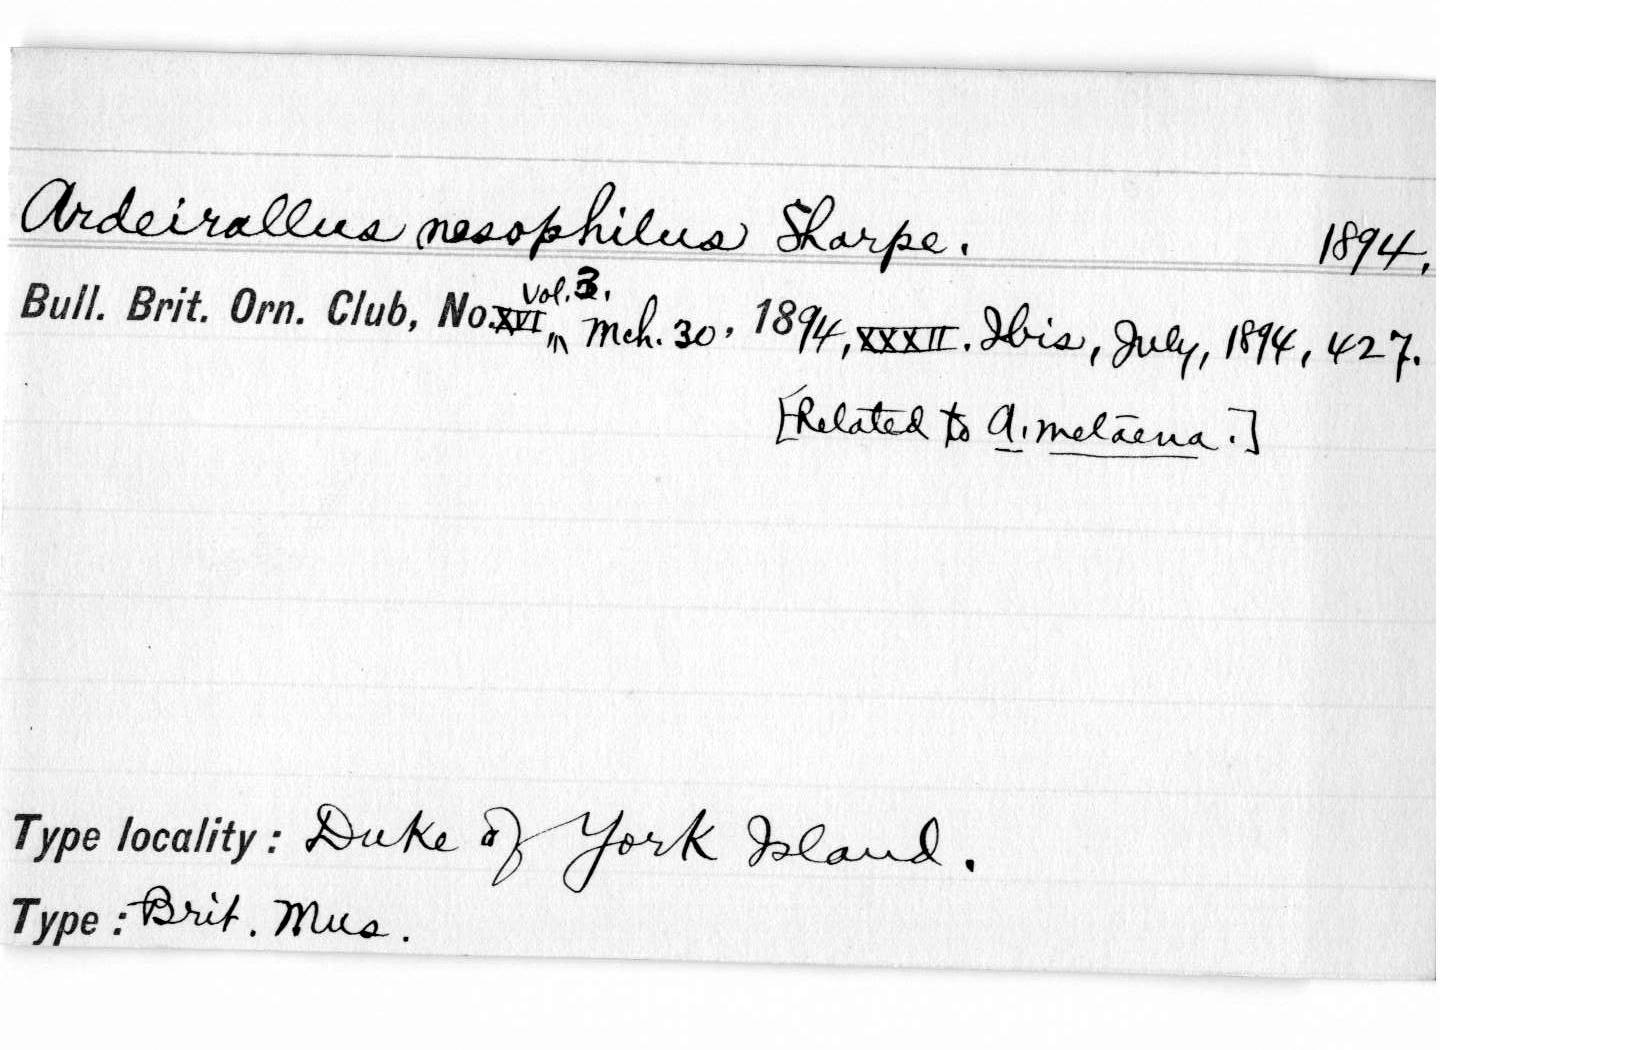 Ardeirallus nesophilus Sharpe. 1894.
Vol. 3.
Bull. Brit. Orn. Club, No. XVI, Mch. 30, 1894, XXXII. Ibis, July, 1894, 427.
[Related to A. melaena.]
Type locality: Duke of York Island.
Type: Brit. Mus.